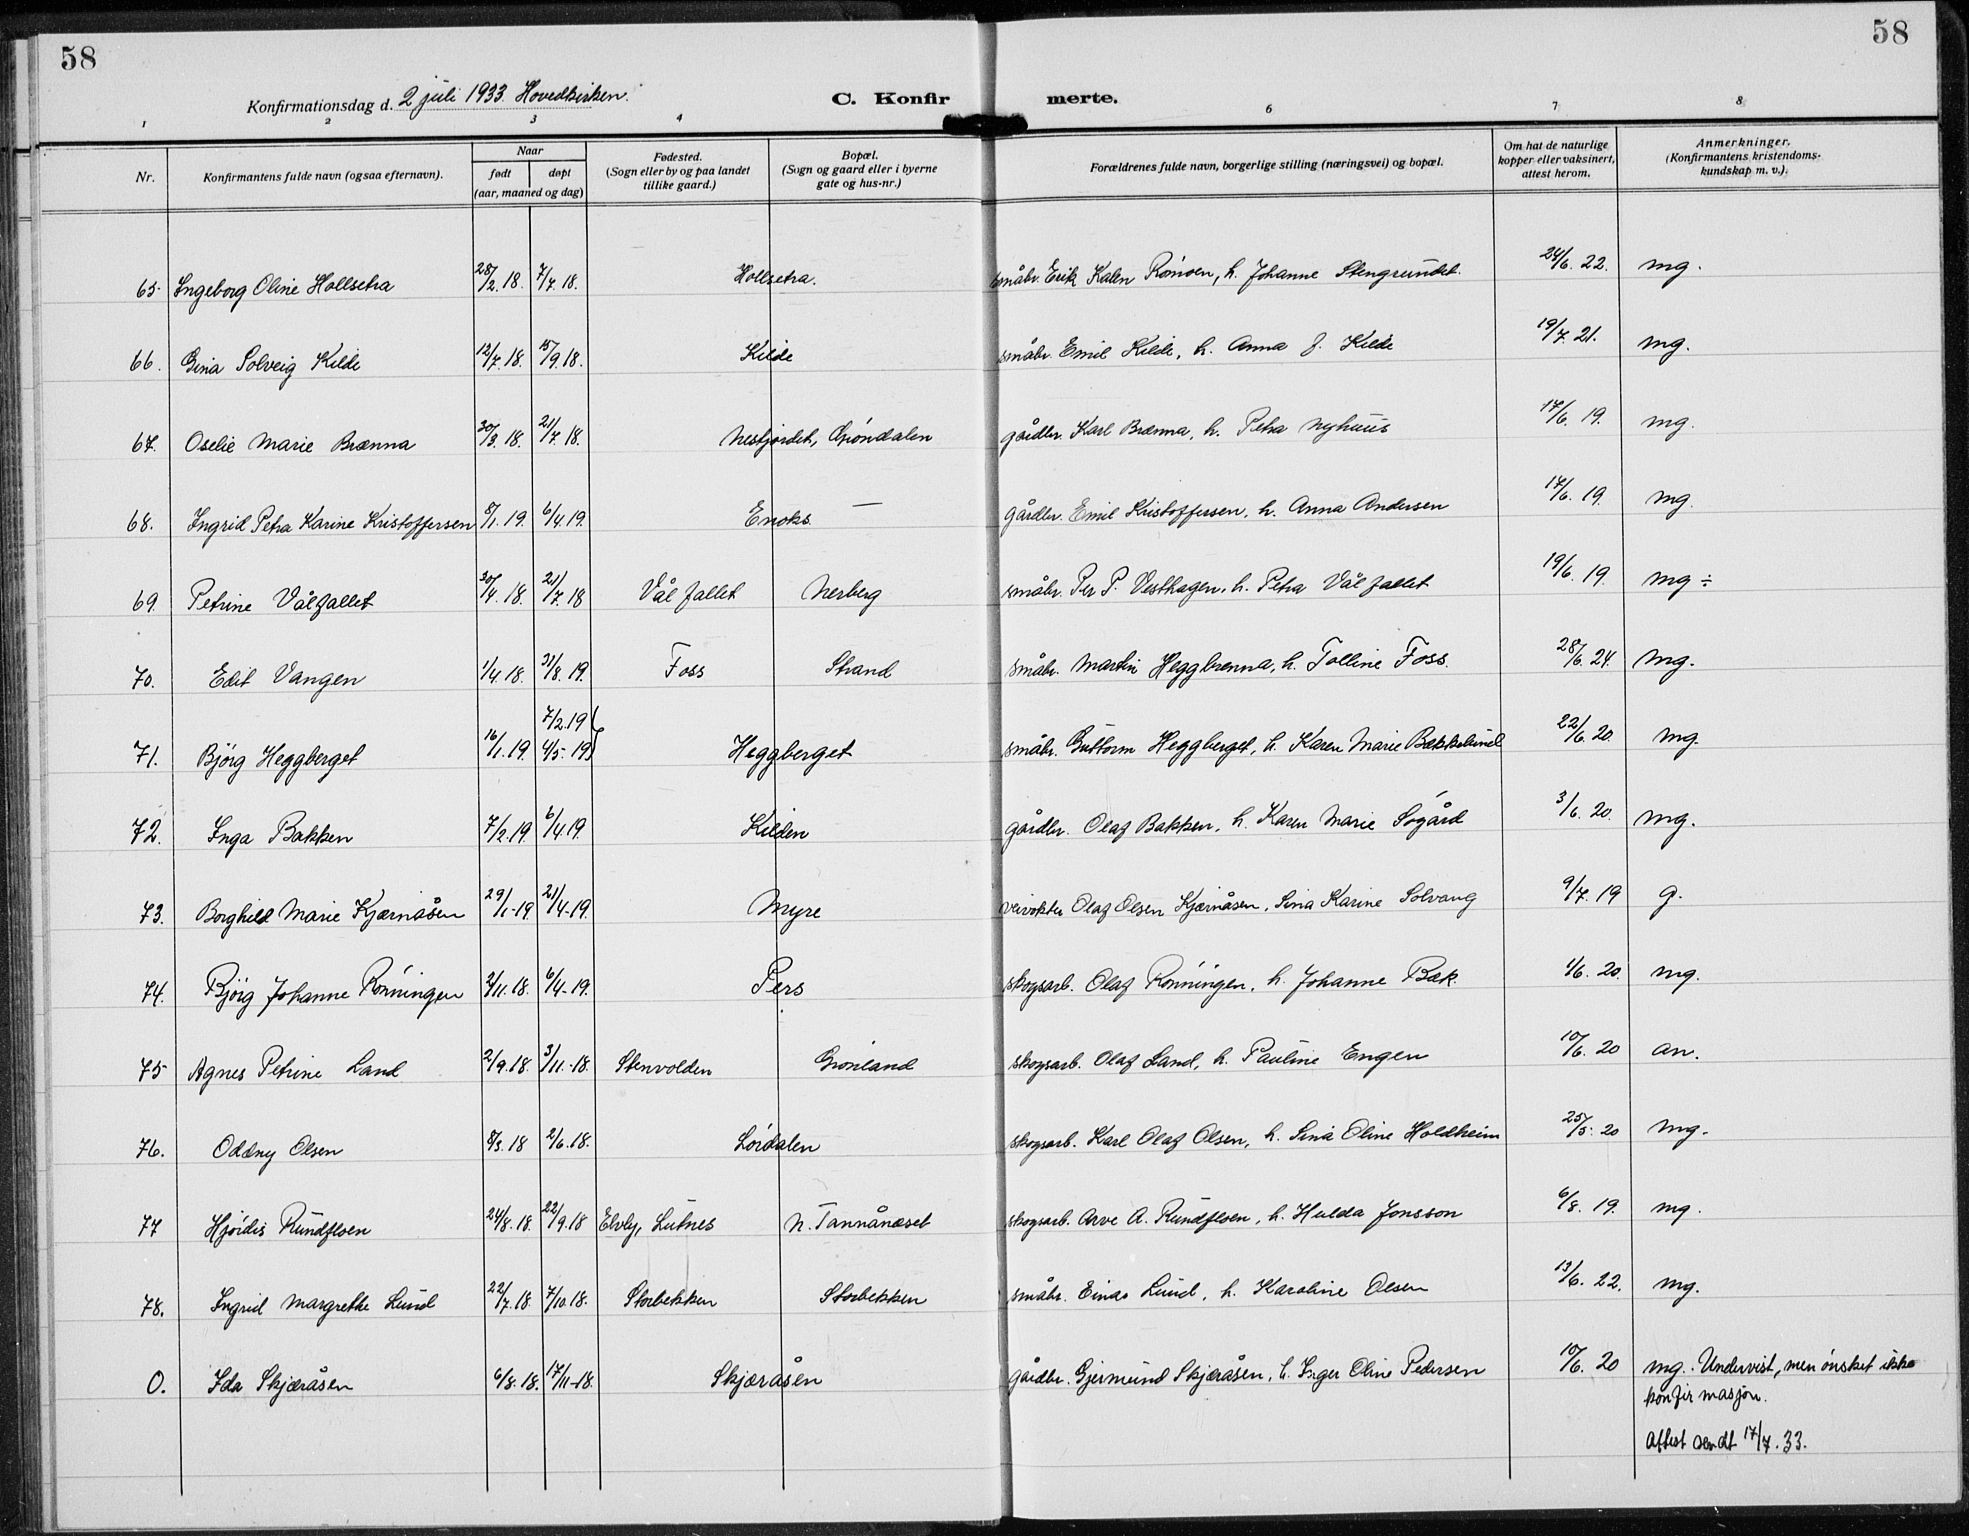 58
58
Konfirmationsdag d. 2 juli 1933. Hovedkirken.
C. Konfir merte.
1 2 3 4 6 7 8
Nr.
Konfirmantens fulde navn (ogsaa efternavn).
Naar
født døpt
(aar, maaned og dag)
Fødested.
(Sogn eller by og paa landet
tillike gaard.)
Bopæl.
(Sogn og gaard eller i byerne
gate og hus-nr.)
Forældrenes fulde navn, borgerlige stilling (næringsvei) og bopæl.
Om hat de naturlige
kopper eller vaksinert,
attest herom.
Anmerkninger.
(Konfirmantens kristendoms-
kundskap m. v.).
65. Ingeborg Oline Hollsetra 28/2. 18. 7/7. 18. Hollsetra. småbr. Erik Kalen Rønoen, h. Johanne Stengrundet. 24/6. 22. mg.
66. Gina Solveig Kilde 12/7. 18. 15/9. 18. Kilde småbr. Emil Kilde, h. Anna J. Kilde 19/7. 21. mg.
67. Oselie Marie Brænna 30/3. 18. 21/7. 18. Nesfjordet, Grøndalen gårdbr. Karl Brænna, h. Petra Nyhuus 17/6. 19. mg.
68. Ingrid Petra Karine Kristoffersen 8/1. 19. 6/4 19. Enoks. — gårdbr. Emil Kristoffersen, h. Anna Andersen 17/6. 19. mg.
69. Petrine Vålfallet 30/4. 18. 21/7. 18 Vålfallet Nerberg småbr. Per P. Vesthagen, h. Petra Vålfallet 19/6. 19. mg ÷
70. Edit Vangen 1/4. 18. 31/8. 19. Foss Strand småbr. Martin Heggbrenna, h. Tolline Foss. 28/6. 24. mg.
7/2. 19
71. Bjørg Heggberget 16/1. 19 4/5- 19 Heggberget småbr. Guttorm Heggberget, h. Karen Marie Bækkelund 22/6. 20. mg.
72. Inga Bakken 7/2. 19. 6/4 19. Kilden gårdbr. Olaf Bakken, h. Karen Marie Søgård 3/6. 20. mg.
73. Borghild Marie Kjærnåsen 29/1-19 21/4-19. Myre veivokter Olaf Olsen Kjærnåsen, Sina Karine Solvang 9/7. 19 g.
74. Bjørg Johanne Rønningen 2/11. 18. 6/4-19. Pers skogsarb. Olaf Rønningen, h. Johanne Bæk. 1/6. 20. mg.
75 Agnes Petrine Land 2/9. 18. 3/11.-18. Stenvolden Grønland skogsarb. Olaf Land, h. Pauline Engen 10/6. 20 an.
76. Oddny Olsen 8/3. 18 2/6. 18. Lørdalen skogsarb. Karl Olaf Olsen, h. Sina Oline Holdheim 25/5. 20 mg.
77 Hjørdis Rundfloen 24/8. 18. 22/9. 18 Elvly, Lutnes N. Tannånæset skogsarb. Arve A. Rundfloen, h. Hulda Jonsson 6/8. 19. mg.
78. Ingrid Margrethe Lund 22/7. 18. 7/10. 18. Storbekken Storbekken småbr. Einar Lund, h. Karoline Olsen 13/6. 22. mg.
0. Ida Skjæråsen 6/8. 18. 17/11-18. Skjæråsen gårdbr. Gjermund Skjæråsen, h. Inger Oline Pedersen 10/6. 20 mg. Undervist, men ønsket ikke
konfirmasjon.
Attest sendt 17/7. 33.